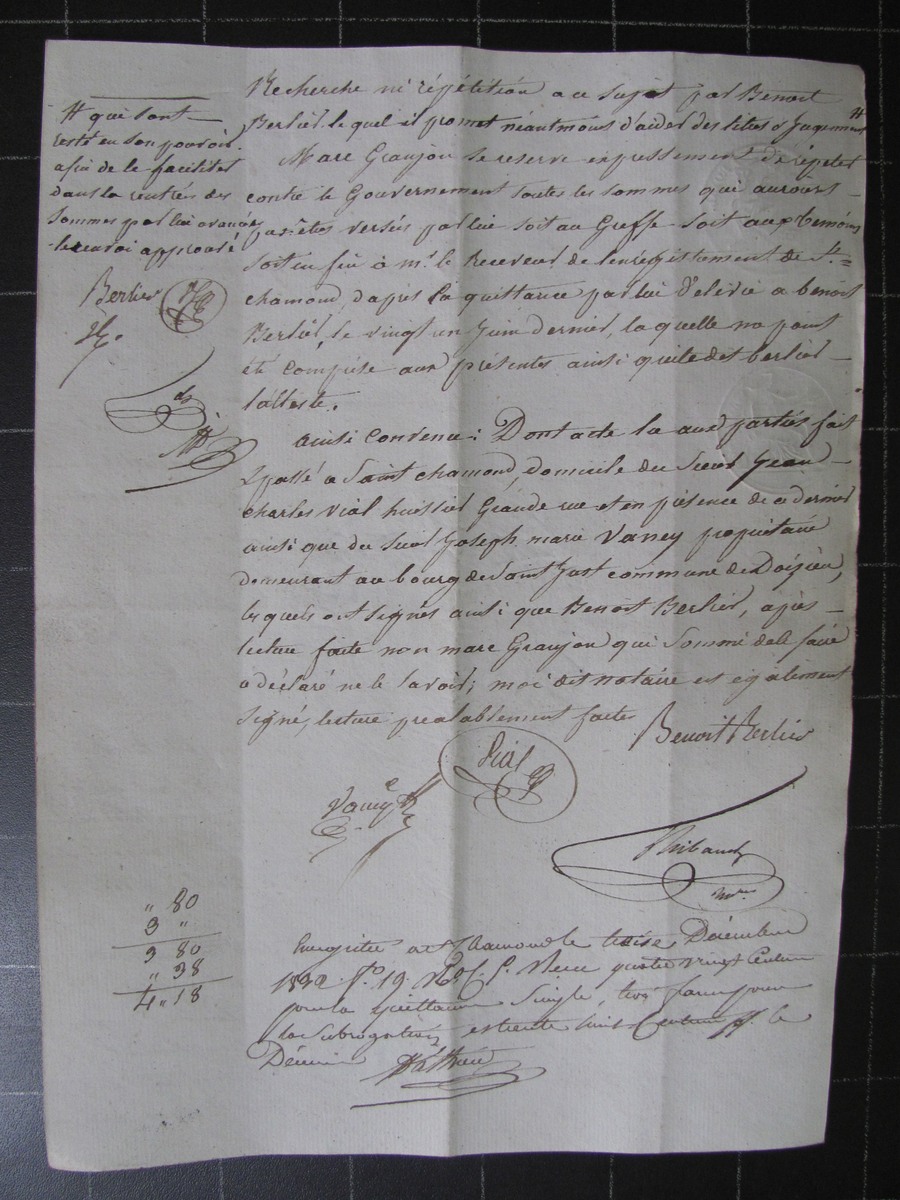 Recherche ni répétition a ce sujet par Benoit
Berlier, le quel il promet néantmoins d'aider des titres & Jugement #
Marc Granjon se reserve expressement de répeter
contre le Gouvernement toutes les sommes qui auroient
été versés par lui soit au Greffe soit aux temoins
soit enfin à mr. le Receveur de l'enregistrement de St.=
chamond, d'apres la quittance par lui delivrée a benoit
Berlier, le vingt un Juin dernier, la quelle na point
été comprise aux présentes ainsi que ledit berlier
l'atteste.
ainsi convenu: Dont acte lu aux parties fait
& passé a Saint chamond, domicile du Sieur Jean
charles Vial huissier Grande rue et en présence de ce dernier
ainsi que du Sieur Joseph marie Vaney propriétaire
demeurant au bourg de Saint Just commune de Doizieu,
les quels ont signés ainsi que Benoit Berlier, après
lecture faite non marc Granjon qui Sommé de le faire
a déclaré ne le savoir; moi dit notaire ai également
signé, lecture prealablement faite
# qui sont
resté en son pouvoir
afin de le faciliter
dans la rentrée des
sommes par lui avancées
le renvoi approuvé
Berlier
Benoit Berlier
Vial
Vaney
Thibaud
nre
Enregistré a St. Chamond le treize Décembre
1832 fo. 19. Ro. C. Reçu quatre vingt Centimes
pour la quittance Simple, trois francs pour
la Subrogation, et trente huit Centimes pr. le
Décime
" 80
3 "
3 80
" 38
4 " 18